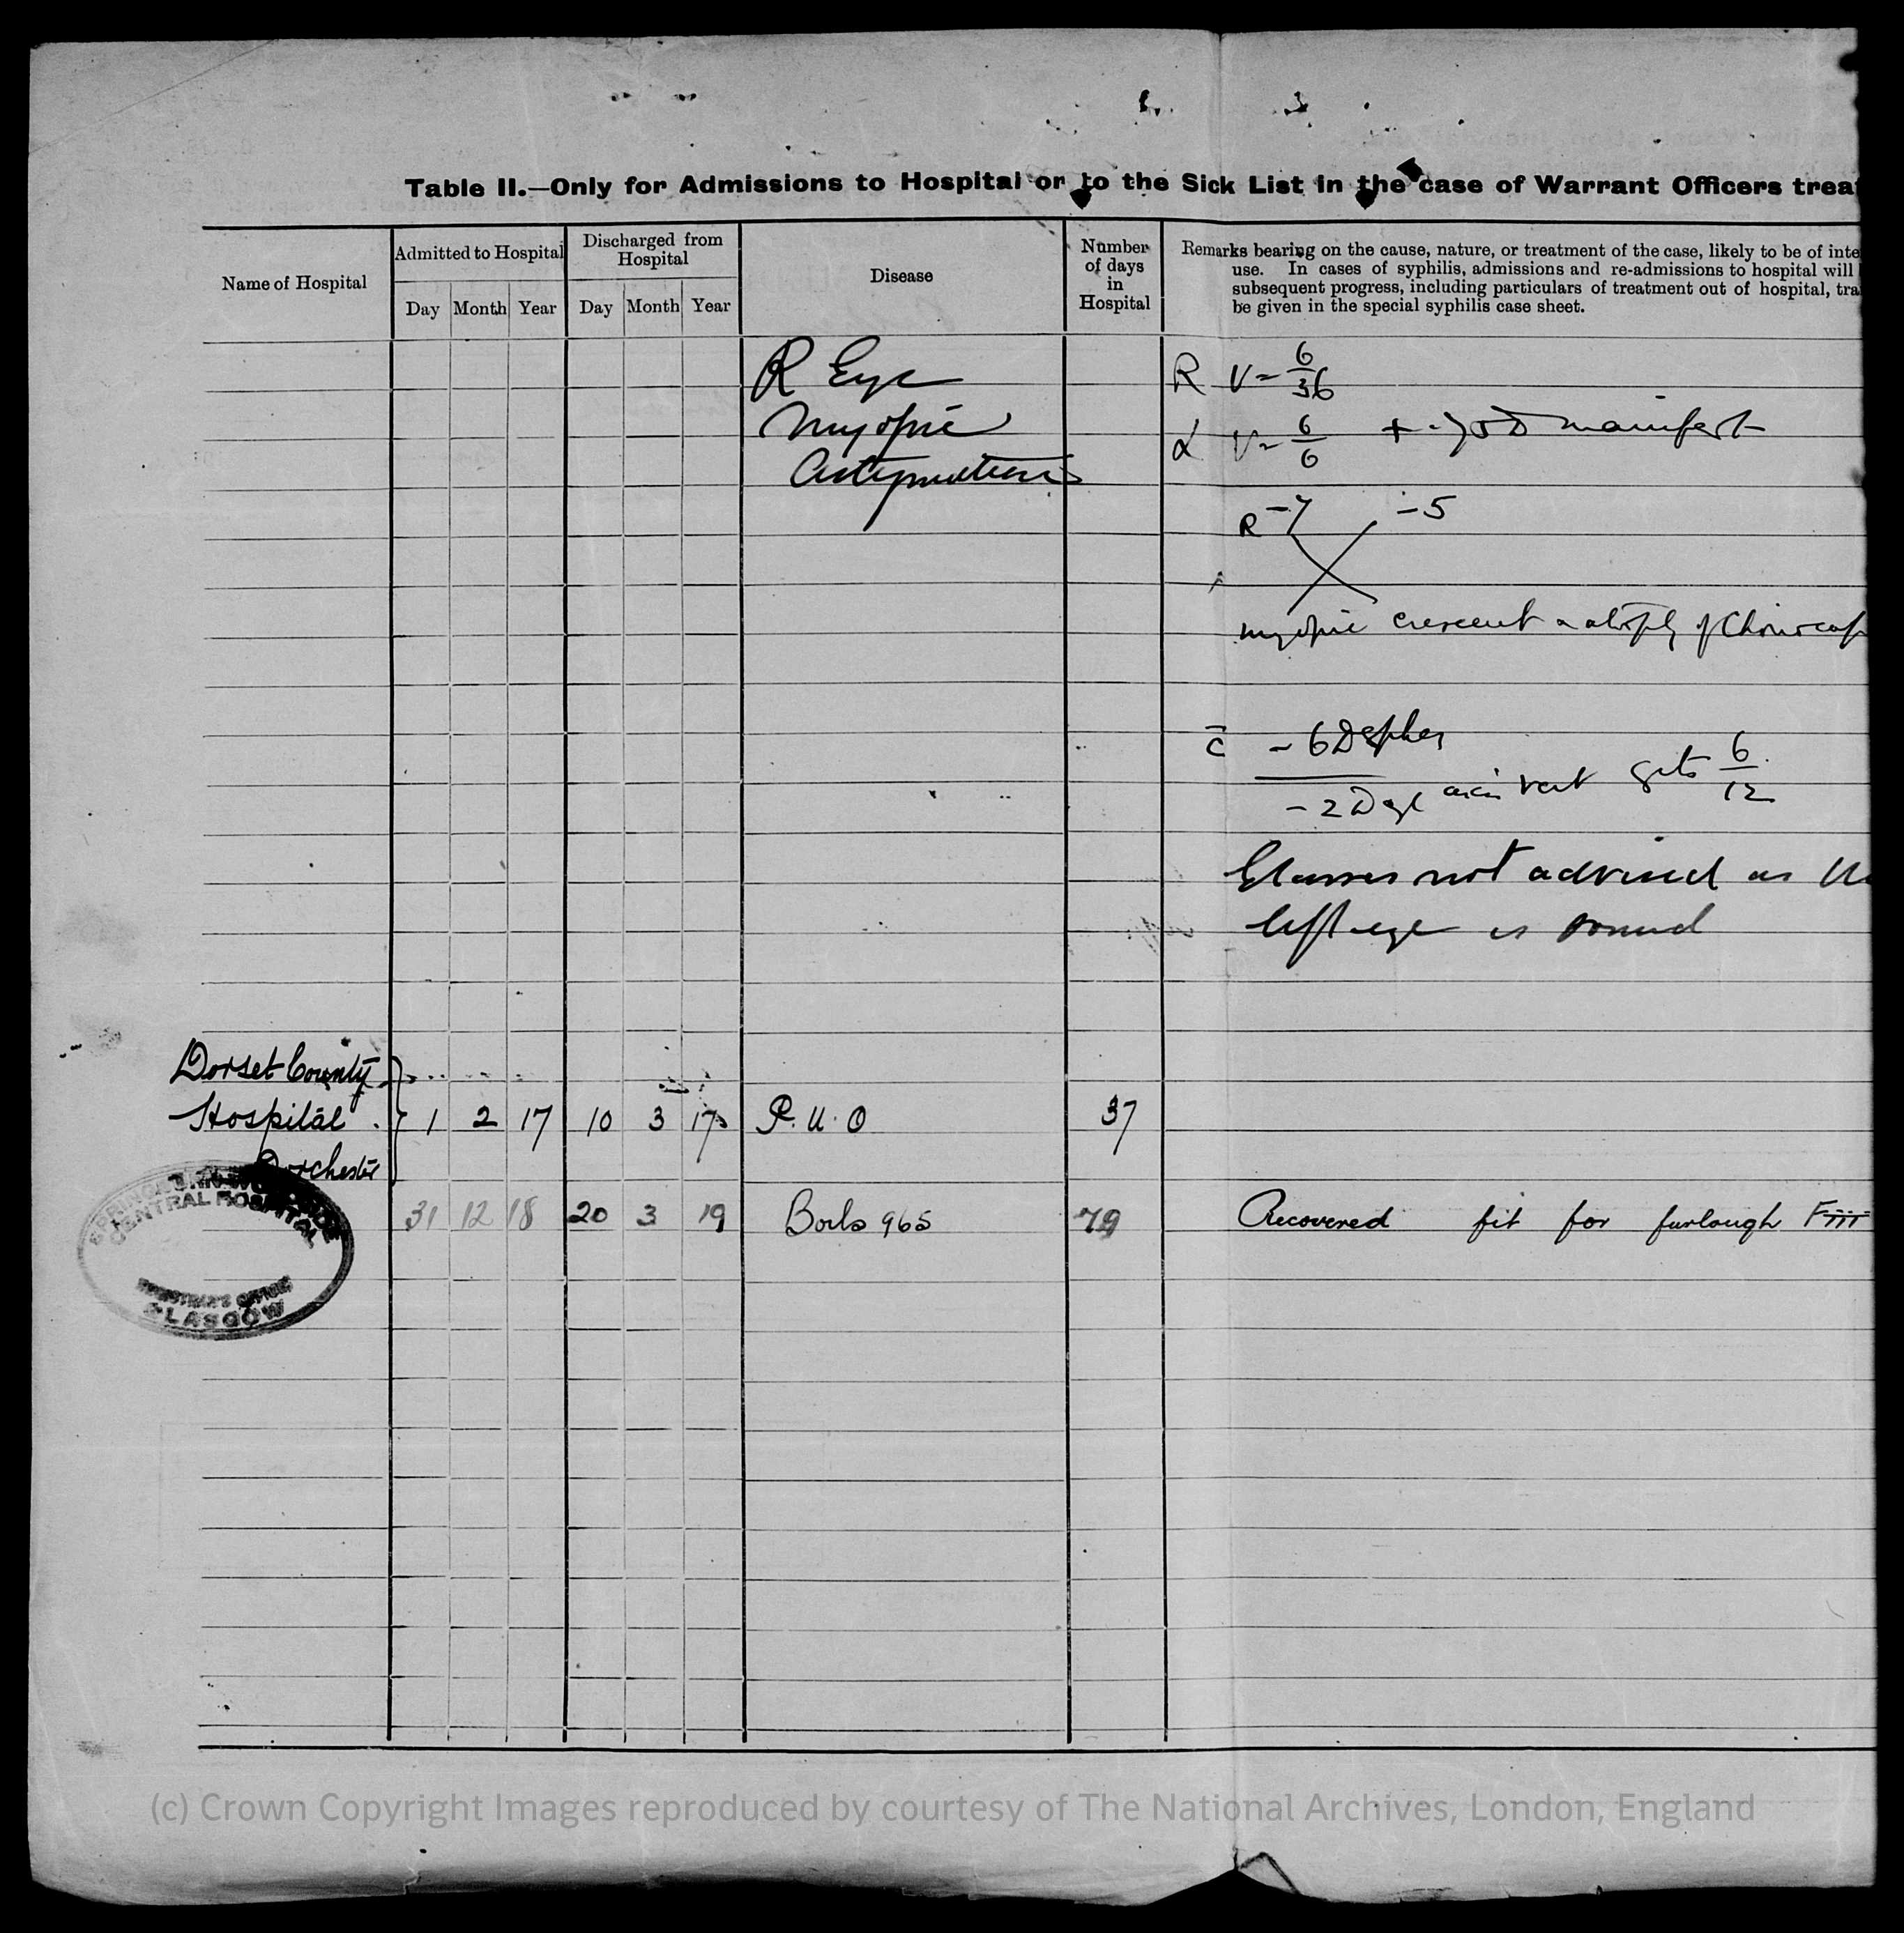 Table II.—Only for Admissions to Hospital or to the Sick List in the case of Warrant Officers trea
Name of Hospital
Admitted to Hospital
Day Month Year
Discharged from
Hospital
Day Month Year
Disease
Number
of days
in
Hospital
Remarks bearing on the cause, nature, or treatment of the case, likely to be of inte
use. In cases of syphilis, admissions and re-admissions to hospital will
subsequent progress, including particulars of treatment out of hospital, tra
be given in the special syphilis case sheet.
R Eye
Myopic
Astigmatism
R V = 6/36
L V = 6/6 + .75 D manifest
R -7 -5
myopic crescent atrophy of
c̄ - 6 D spher
- 2 D cyl axis vert gets 6/12
Glasses not advised as
left eye is sound
Dorset County
Hospital 1 2 17 10 3 17 P.U.O 37
Dorchester
31 12 18 20 3 19 Boils 965 79 Recovered fit for furlough Fiii
SPRINGBURN WOODSIDE
CENTRAL HOSPITAL
REGISTRAR'S OFFICE
GLASGOW
(c) Crown Copyright Images reproduced by courtesy of The National Archives, London, England